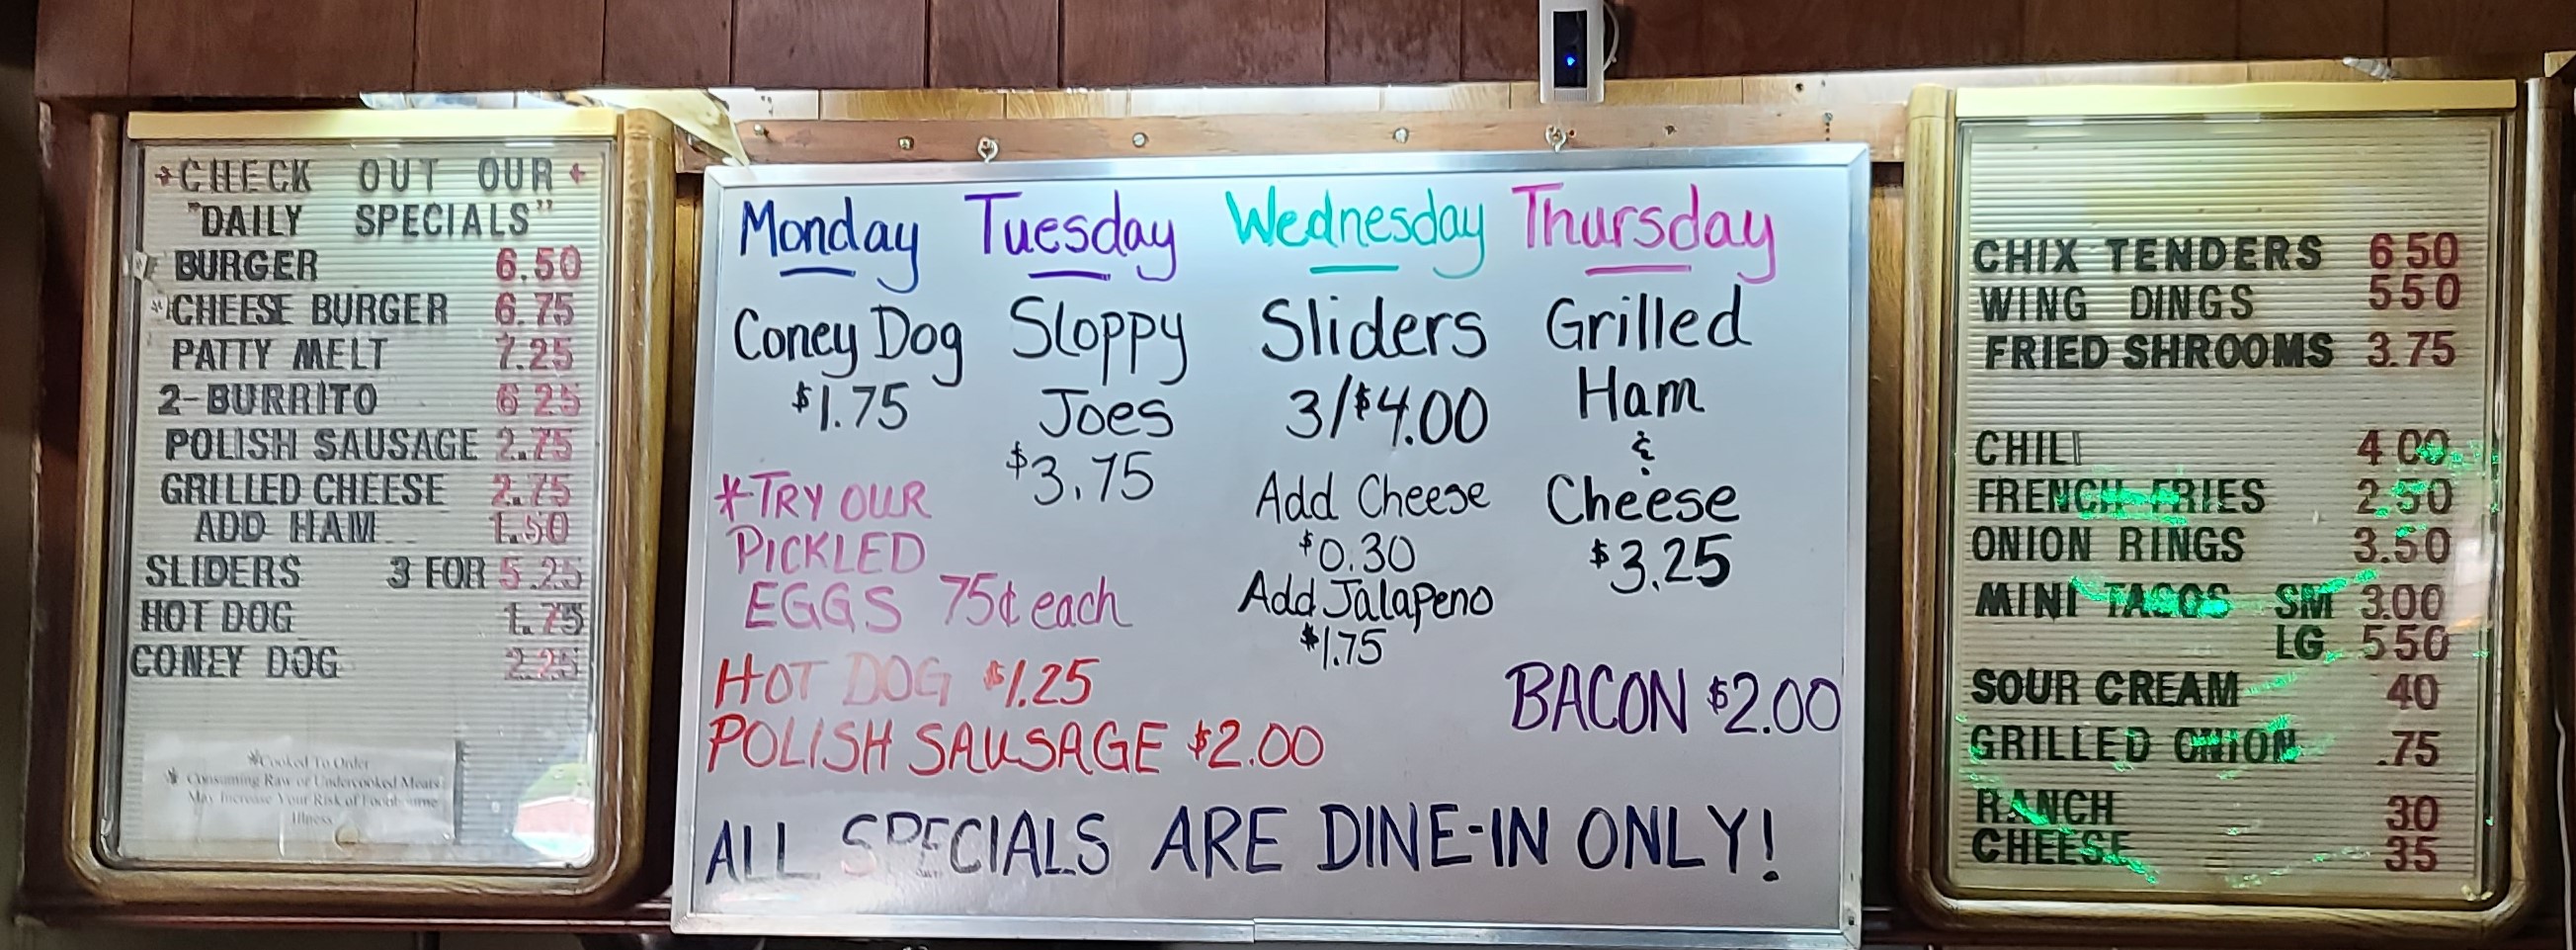 *CHECK OUT OUR*
"DAILY SPECIALS"
* BURGER 6.50
*CHEESE BURGER 6.75
PATTY MELT 7.25
2-BURRITO 6 25
POLISH SAUSAGE 2.75
GRILLED CHEESE 2.75
ADD HAM 1.50
SLIDERS 3 FOR 5.25
HOT DOG 1.75
CONEY DOG 2.25
*Cooked To Order
* Consuming Raw or Undercooked Meats
May Increase Your Risk of Foodbourne
Illness
Monday
Coney Dog
$1.75
Tuesday
Sloppy
Joes
$3.75
Wednesday
Sliders
3/$4.00
Add Cheese
$0.30
Add Jalapeno
$1.75
Thursday
Grilled
Ham
&
Cheese
$3.25
*TRY OUR
PICKLED
EGGS 75¢ each
HOT DOG $1.25
POLISH SAUSAGE $2.00
BACON $2.00
ALL SPECIALS ARE DINE-IN ONLY!
CHIX TENDERS 6 50
WING DINGS 5 50
FRIED SHROOMS 3.75
CHILI 4 00
FRENCH FRIES 2.50
ONION RINGS 3.50
MINI TACOS SM 3.00
LG 5 50
SOUR CREAM 40
GRILLED ONION .75
RANCH 30
CHEESE 35